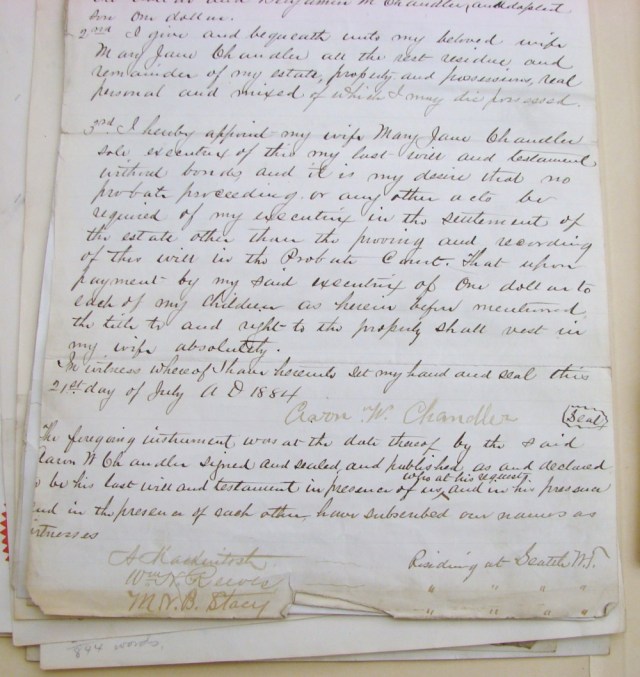 and Benjamin M Chandler, and adopted
son One dollar.
2nd I give and bequeath unto my beloved wife
Mary Jane Chandler all the rest residue, and
remainder of my estate, property and possessions, real
personal and mixed of which I may die possessed.
3rd I hereby appoint my wife Mary Jane Chandler
sole executrix of this my last will and testament
without bonds and it is my desire that no
probate proceeding or any other acts be
required of my executrix in the settlement of
the estate other than the proving and recording
of this will in the Probate Court. That upon
payment by my said executrix of One dollar to
each of my children as herein before mentioned
the title to and right to the property shall vest in
my wife absolutely.
In witness whereof I have hereunto set my hand and seal this
21st day of July A D 1884
Aaron W. Chandler (Seal)
The foregoing instrument was at the date thereof by the said
Aaron W Chandler signed and sealed, and published, as and declared
who at his request
to be his last will and testament in presence of us, and in his presence
and in the presence of each other, have subscribed our names as
witnesses
A Mackintosh Residing at Seattle W.T.
Wm H. Reeves " " " "
M. V. B. Stacy " " " "
844 words.